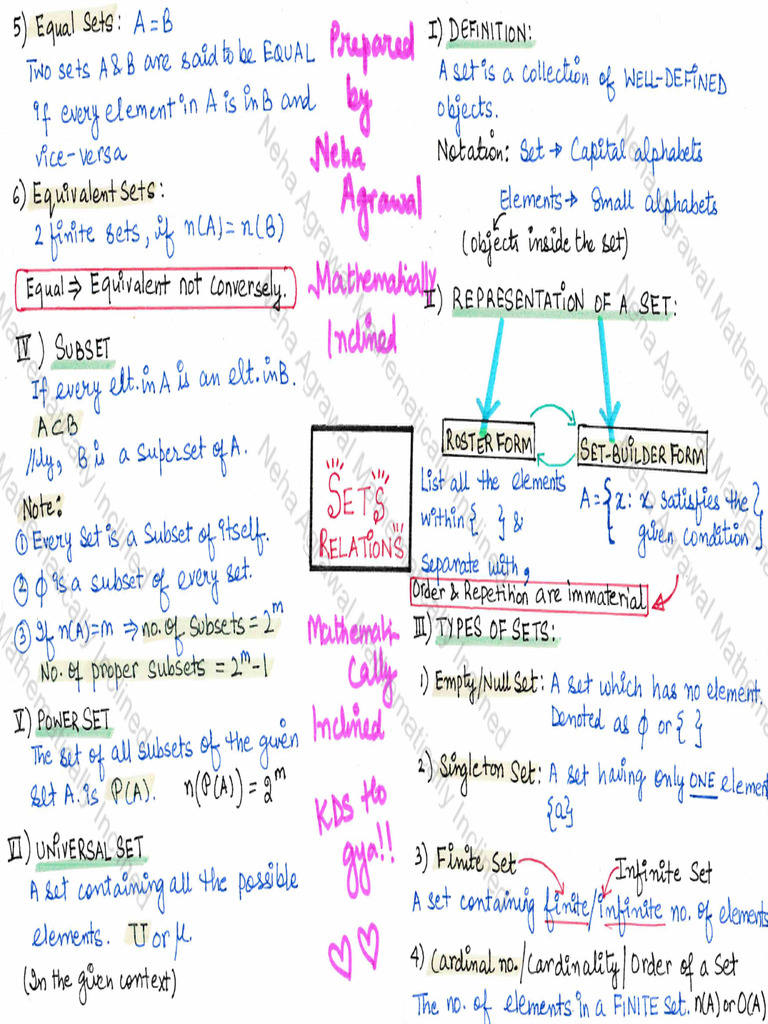 I) DEFINITION:
A set is a collection of WELL-DEFINED
objects.
Notation: Set → Capital alphabets
Elements → Small alphabets
(objects inside the set)
II) REPRESENTATION OF A SET:
ROSTER FORM
List all the elements
within { } &
separate with ,
SET-BUILDER FORM
A = {x : x satisfies the
given condition}
Order & Repetition are immaterial
III) TYPES OF SETS:
1) Empty/Null Set: A set which has no element.
Denoted as ϕ or { }
2) Singleton Set: A set having only ONE element
{a}
3) Finite Set
Infinite Set
A set containing finite/infinite no. of elements
4) Cardinal no./Cardinality/Order of a Set
The no. of elements in a FINITE set. n(A) or O(A)
5) Equal Sets: A = B
Two sets A & B are said to be EQUAL
if every element in A is in B and
vice-versa
6) Equivalent Sets:
2 finite sets, if n(A) = n(B)
Equal ⇒ Equivalent not conversely.
IV) SUBSET
If every elt. in A is an elt. in B.
A⊂B
||ly, B is a superset of A.
Note:
① Every set is a subset of itself.
② ϕ is a subset of every set.
③ If n(A) = m ⇒ no. of subsets = 2^m
No. of proper subsets = 2^m - 1
V) POWER SET
The set of all subsets of the given
set A. is P(A). n(P(A)) = 2^m
VI) UNIVERSAL SET
A set containing all the possible
elements. U or μ.
(In the given context)
Prepared
by
Neha
Agrawal
Mathematically
Inclined
SETS
RELATIONS
Mathemati-
cally
Inclined
KDS Ho
gya!!
Neha Agrawal Mathematically Inclined
Neha Agrawal Mathematically Inclined
Neha Agrawal Mathema
Neha Agrawal Mathema
Mathematically Inclined
Mathematically Inclined